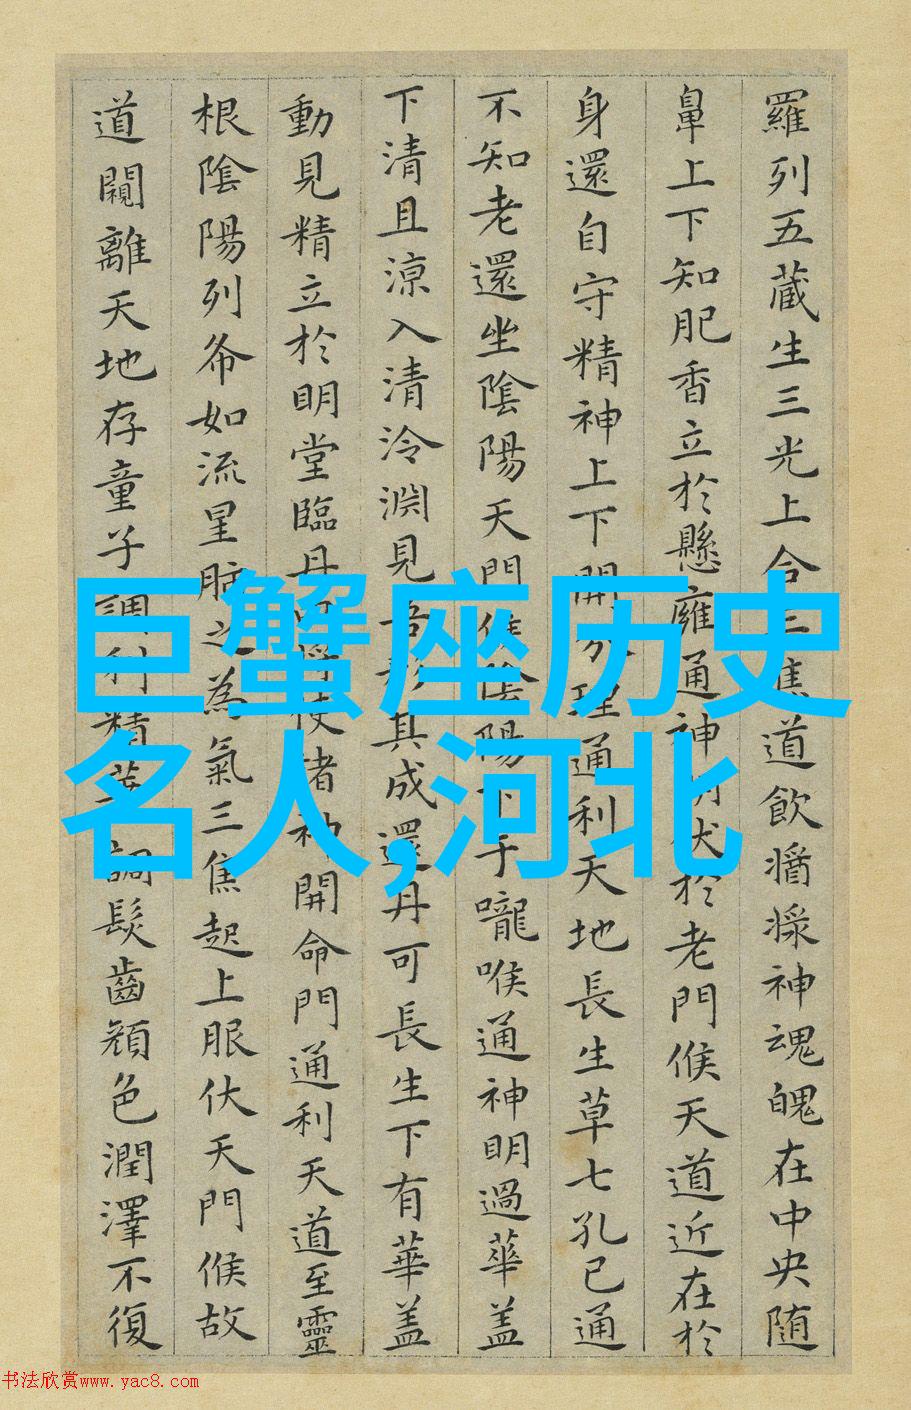 羅列五藏生三光上合三焦道飲酱滌神魂魄在中央随
鼻上下知肥香立於懸廱通神明伏於老門候天道近在於
身還自守精神上下開分理通利天地長生草七孔已通
不知老還坐陰陽天門候陰陽下于嚨喉通神明過華盖
下清且涼入清泠淵見吾形其成還丹可長生下有華盖
動見精立於明堂臨丹田将使诸神開命門通利天道至靈
根陰陽列布如流星肺之為氣三焦起上服伏天門候故
道闚離天地存童子調利精華調髮齒顔色潤澤不復
巨蟹座历史
名人,河北
书法欣赏www.yac8.com